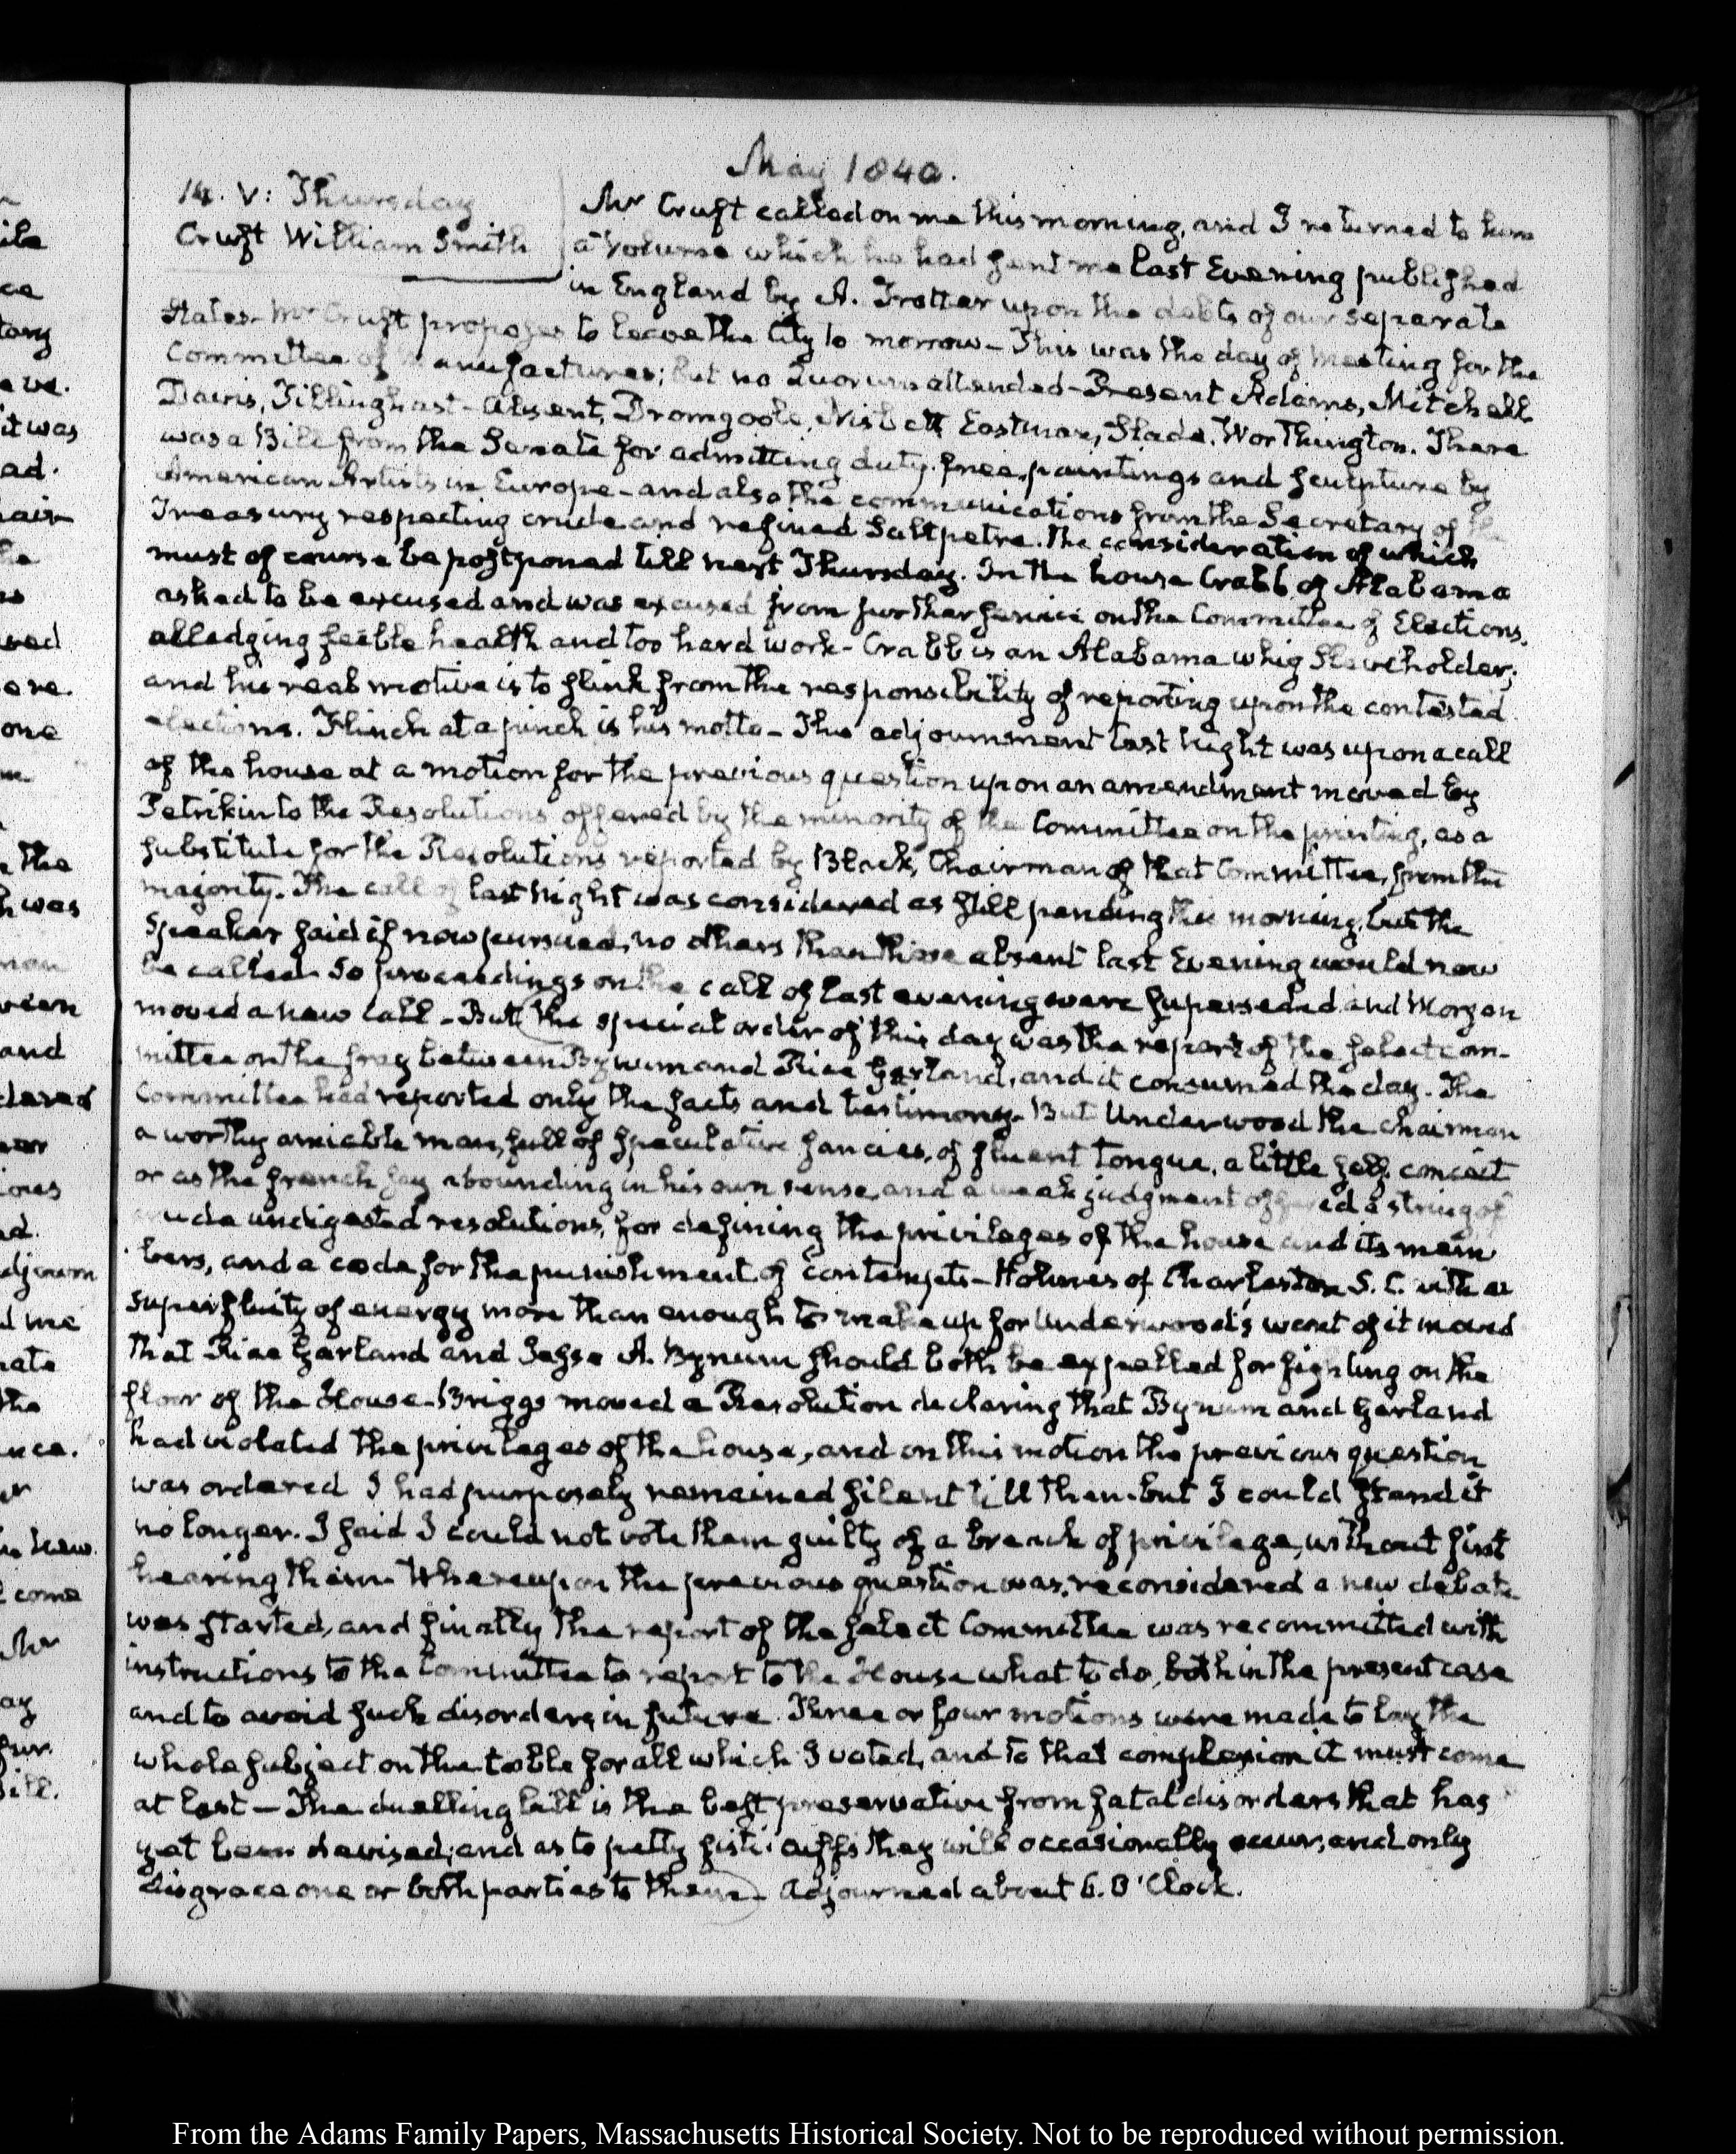 May 1840.
14. V: Thursday
Cruft William Smith
Mr Cruft called on me this morning, and I returned to him
a volume which he had sent me last Evening published
in England by A. Trotter upon the debts of our separate
States. Mr Cruft proposes to leave the City to morrow – This was the day of meeting for the
Committee of Manufactures; but no Quorum attended – Present Adams, Mitchell
Davis, Tillinghast – Absent, Dromgoole, Nisbett Eastman, Slade, Worthington. There
was a Bill from the Senate for admitting duty-free, paintings and sculpture by
American Artists in Europe – and also the communications from the Secretary of the
Treasury respecting crude and refined Saltpetre. The consideration of which
must of course be postponed till next Thursday. In the house Crabb of Alabama
asked to be excused and was excused from further service on the Committee of Elections,
alledging feeble health and too hard work – Crabb is an Alabama whig Slaveholder;
and his real motive is to slink from the responsibility of reporting upon the contested
elections. Flinch at a pinch is his motto – The adjournment last night was upon a call
of the house at a motion for the previous question upon an amendment moved by
Petrikin to the Resolutions offered by the minority of the Committee on the printing, as a
substitute for the Resolutions reported by Black, Chairman of that Committee, from the
majority. The call of last night was considered as still pending this morning, but the
Speaker said if now pursued, no others than those absent last Evening would now
be called. So proceedings on the call of last evening were superseded and Morgan
moved a new call – But (the special order of this day was the report of the select com-
mittee on the fray between Bynum and Rice Garland, and it consumed the day. The
Committee had reported only the facts and testimony. But Underwood the chairman
a worthy amiable man, full of speculative fancies, of fluent tongue, a little self conceit
or as the french say abounding in his own sense and a weak judgment offered a string of
crude undigested resolutions, for defining the privileges of the house and its mem
bers, and a code for the punishment of contempts – Holmes of Charleston S. C. with a
superfluity of energy more than enough to make up for Underwood's want of it moved
that Rice Garland and Jesse A. Bynum should both be expelled for fighting on the
floor of the House – Briggs moved a Resolution declaring that Bynum and Garland
had violated the privileges of the house, and on this motion the previous question
was ordered I had purposely remained silent till then – but I could stand it
no longer. I said I could not vote them guilty of a breach of privilege, without first
hearing them. Whereupon the previous question was, reconsidered a new debate
was started, and finally the report of the select Committee was recommitted with
instructions to the Committee to report to the House what to do, both in the present case
and to avoid such disorders in future. Three or four motions were made to lay the
whole subject on the table for all which I voted, and to that complexion it must come
at last – The duelling bill is the best preservative from fatal disorders that has
yet been devised; and as to petty fisticuffs they will occasionally occur, and only
disgrace one or both parties to them) – Adjourned about 6. O'Clock.
From the Adams Family Papers, Massachusetts Historical Society. Not to be reproduced without permission.